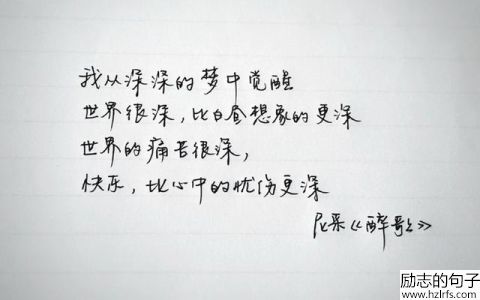 我从深深的梦中觉醒
世界很深，比白昼想象的更深
世界的痛苦很深，
快乐，比心中的忧伤更深
尼采《醉歌》
励志的句子
www.hzlrfs.com